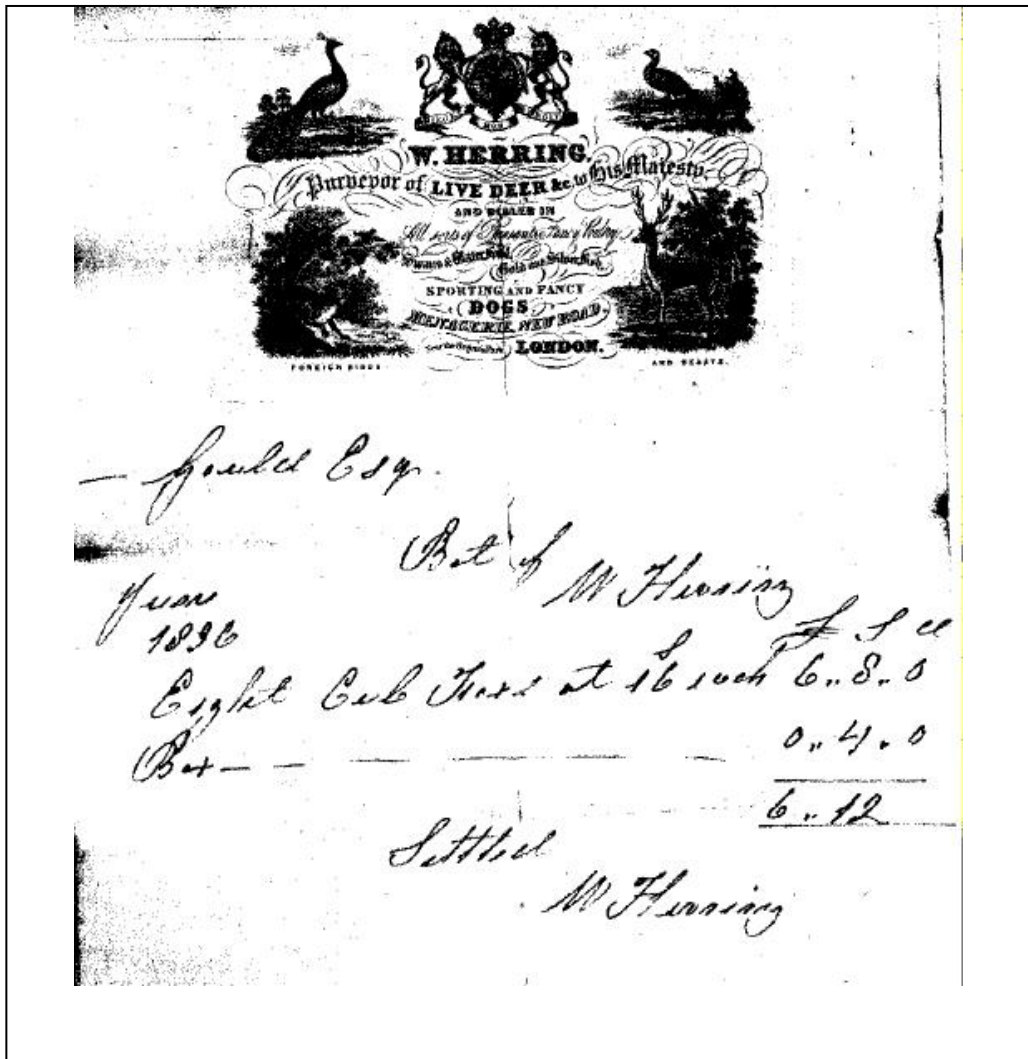 W. HERRING,
Purveyor of LIVE DEER &c. to His Majesty.
AND DEALER IN
All sorts of Pheasants Fancy Poultry
Swans & Water Fowl
Gold and Silver Fish
SPORTING AND FANCY
DOGS
MENAGERIE, NEW ROAD,
LONDON.
FOREIGN BIRDS
AND BEASTS.
— Gould Esqr.
Bot of
W Herring
June
1836
£ S d
S
Eight Cub Foxes at 16 each 6 .. 8 .. 0
Box — — — — — — 0 .. 4 .. 0
6 .. 12
Settled
W Herring